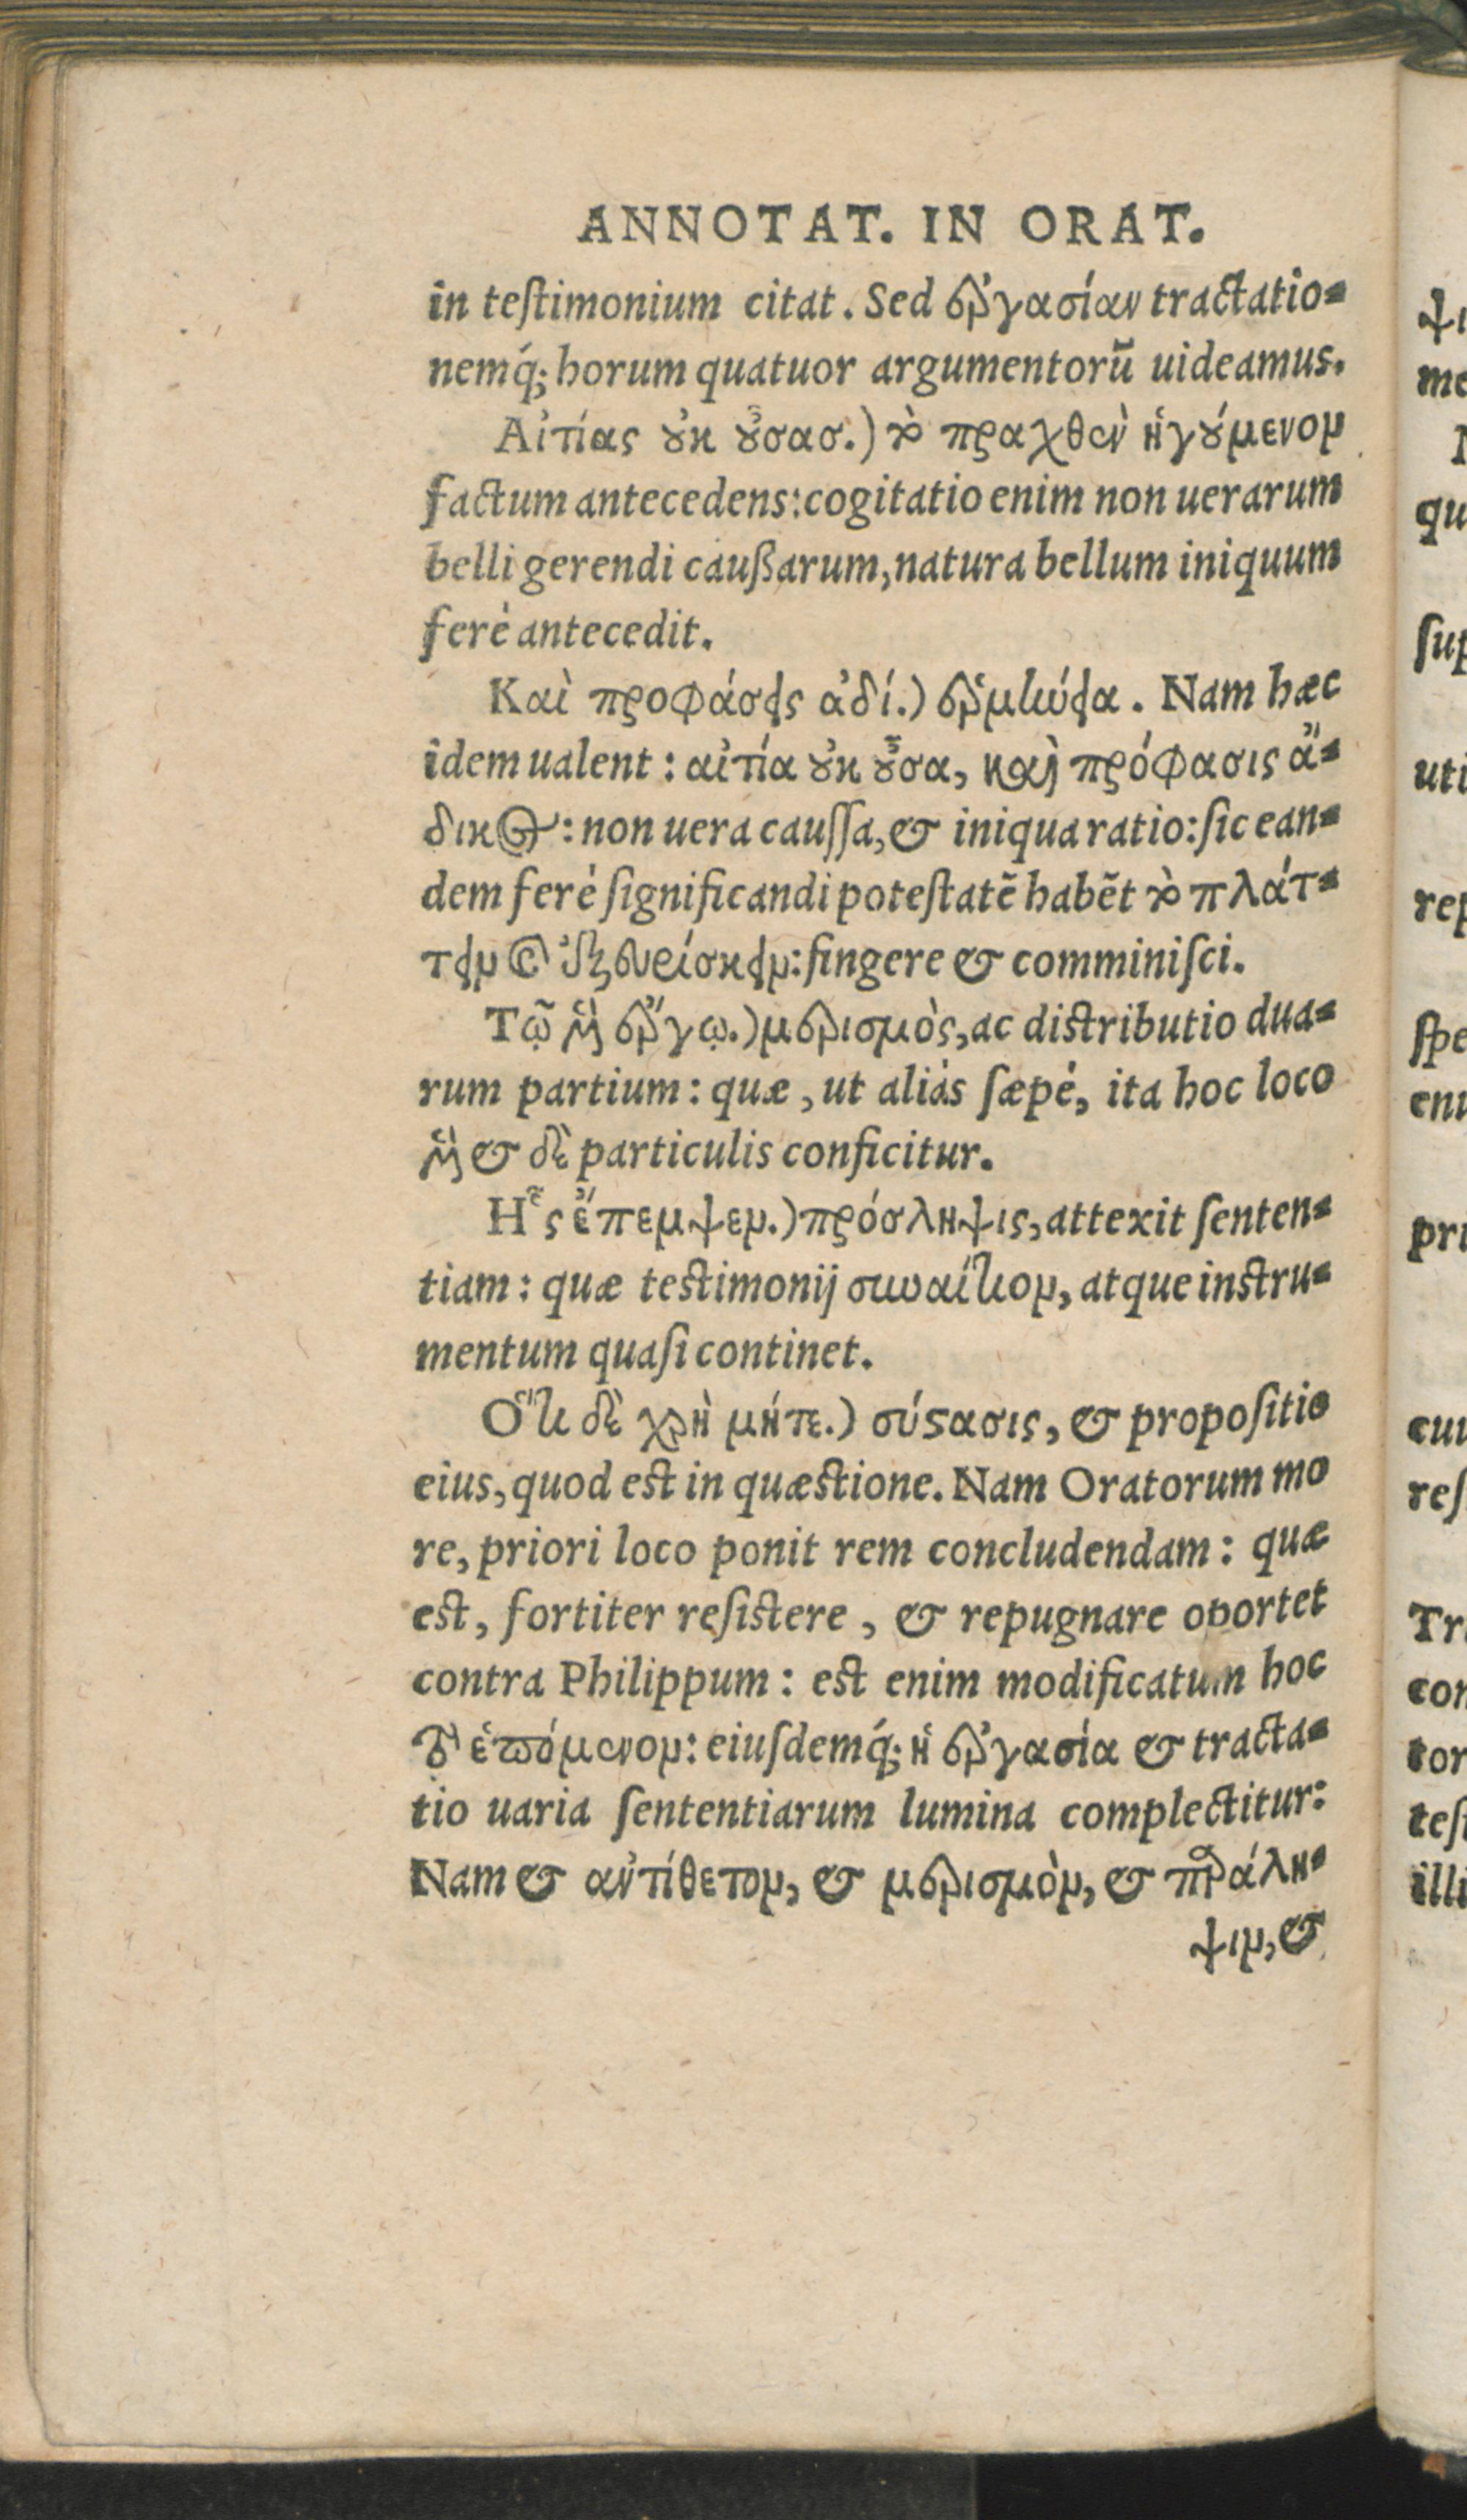 ANNOTAT. IN ORAT.
in teſtimonium citat. Sed ἐργασίαν tractatio-
nemq́; horum quatuor argumentorũ uideamus.
Αἰτίας οὐκ οὔσασ.) τὸ πραχθὲν ἡγούμενον
factum antecedens: cogitatio enim non uerarum
belli gerendi cauſſarum, natura bellum iniquum
ferè antecedit.
Καὶ προφάσεις ἀδί.) ἑρμηνεία. Nam hæc
idem ualent: αἰτία οὐκ οὖσα, καὶ πρόφασις ἄ-
δικος: non uera cauſſa, & iniqua ratio: ſic ean-
dem ferè ſignificandi poteſtatẽ habẽt τὸ πλάτ-
τειν καὶ ἐξευρίσκειν: fingere & comminiſci.
Τῷ μὲν ἔργῳ.) μερισμὸς, ac diſtributio dua-
rum partium: quæ, ut aliàs ſæpè, ita hoc loco
μὲν & δὲ particulis conficitur.
Ηἷς ἔπεμψεν.) πρόσληψις, attexit ſenten-
tiam: quæ teſtimonij συναίτιον, atque inſtru-
mentum quaſi continet.
Ὅτι δὲ χρὴ μήτε.) σύστασις, & propoſitio
eius, quod eſt in quæſtione. Nam Oratorum mo
re, priori loco ponit rem concludendam: quæ
eſt, fortiter reſiſtere, & repugnare oportet
contra Philippum: eſt enim modificatum hoc
τὸ ἑπόμενον: eiuſdemq́; ἡ ἐργασία & tracta-
tio uaria ſententiarum lumina complectitur:
Nam & ἀντίθετον, & μερισμὸν, & παράλη-
ψιν, &